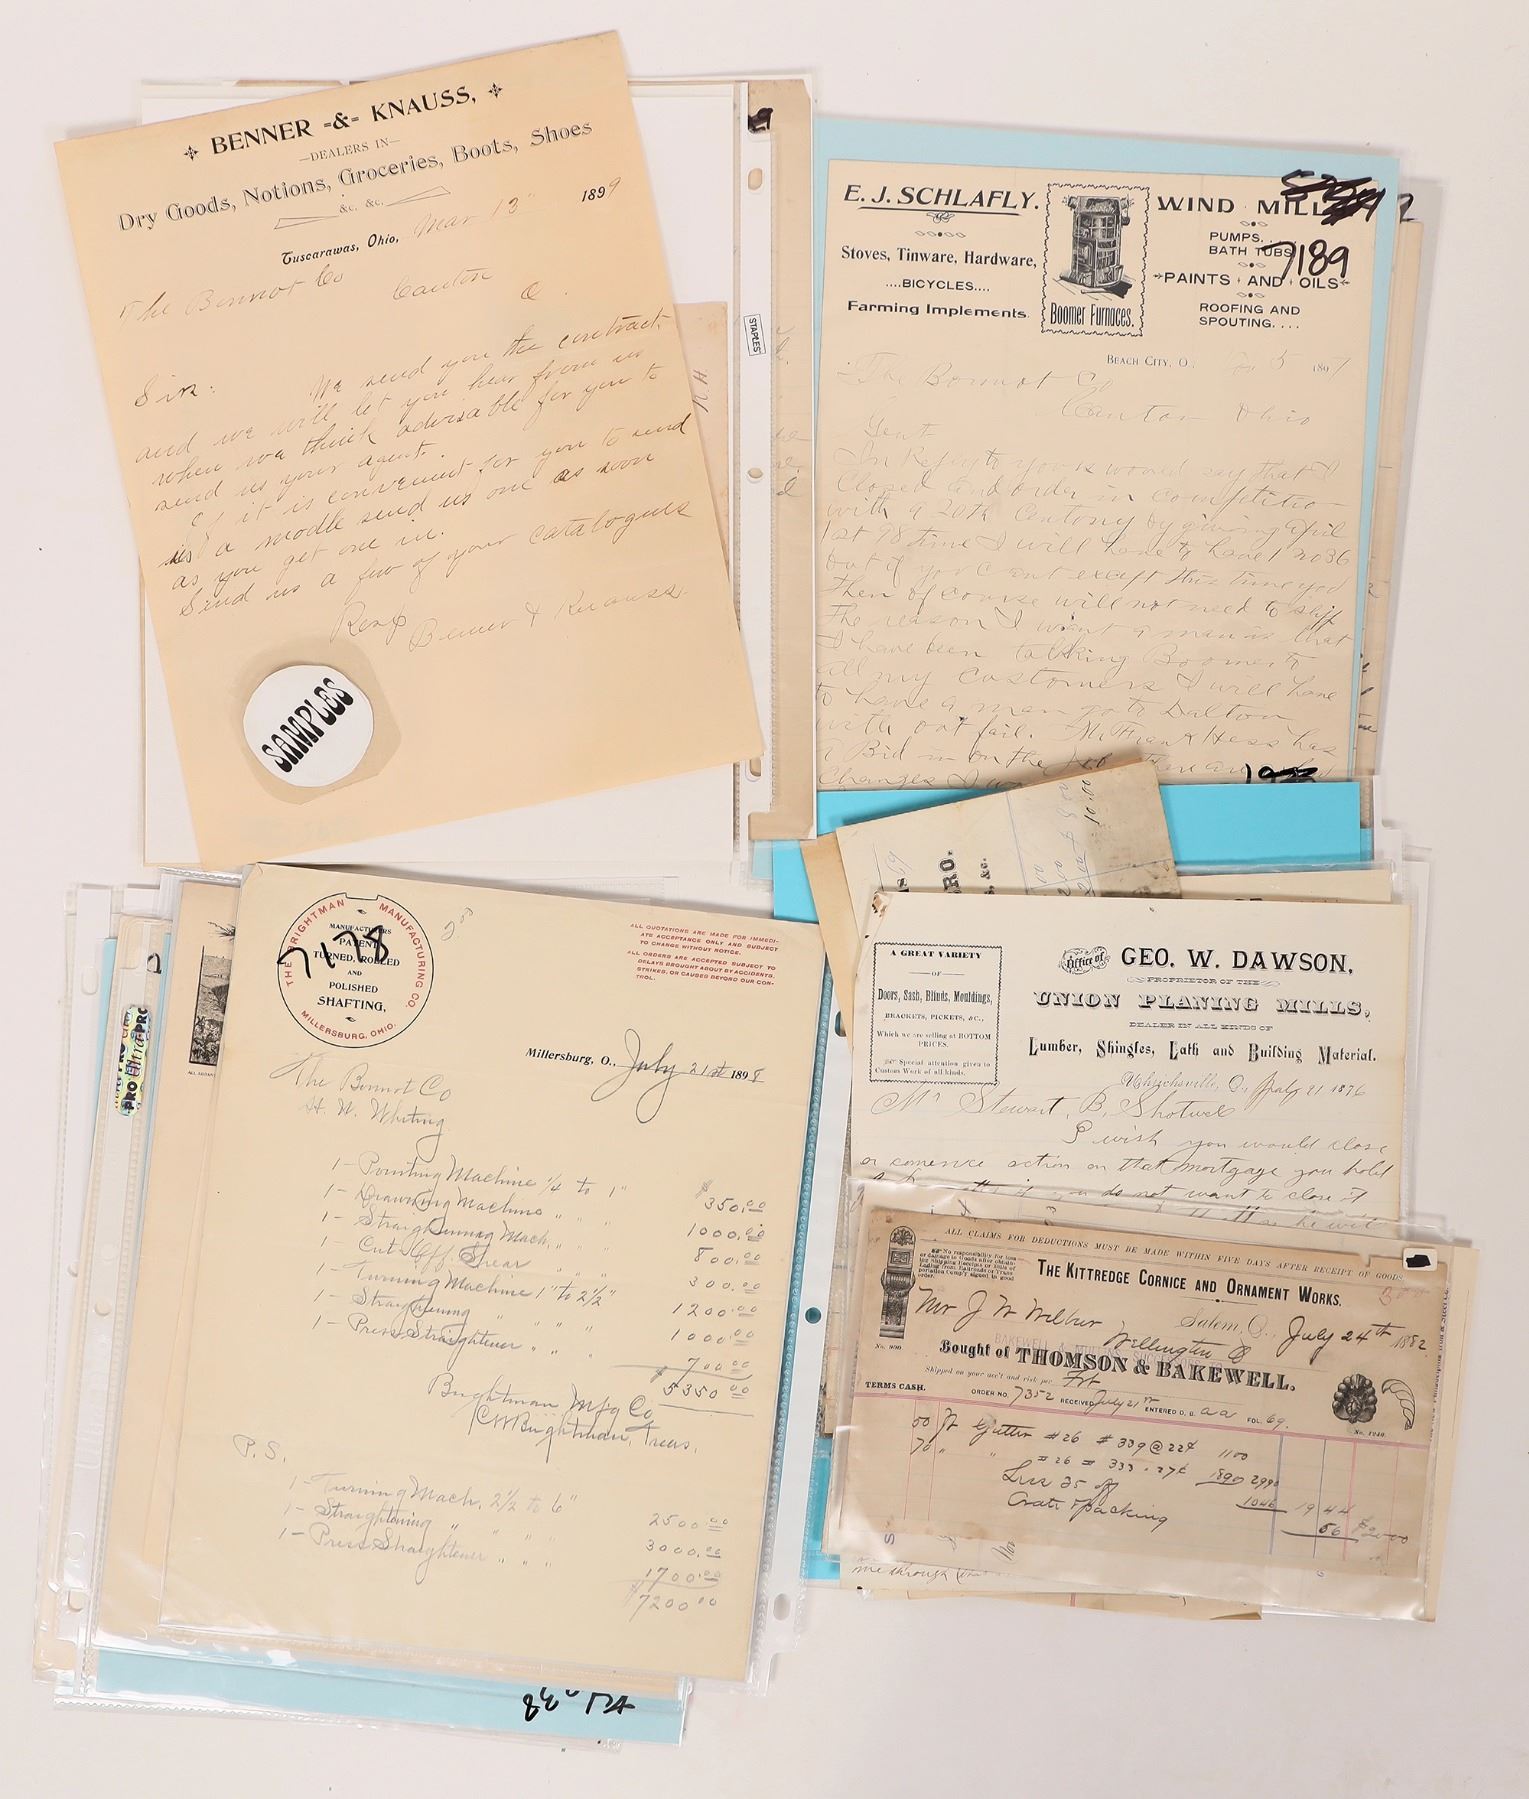 BENNER =&= KNAUSS,
—DEALERS IN—
Dry Goods, Notions, Groceries, Boots, Shoes
&c. &c.
Tuscarawas, Ohio, Mar 13" 1899
The Bonnot Co
Canton O.
Sir: We send you the contract
and we will let you hear from us
when we think advisable for you to
send us your agent.
If it is convenient for you to send
us a modle send us one as soon
as you get one in.
Send us a few of your catalogues
Resp
Benner & Knauss
SAMPLES
STAPLES
E. J. SCHLAFLY.
Stoves, Tinware, Hardware,
....BICYCLES....
Farming Implements.
Boomer Furnaces.
WIND MILL
7189
PUMPS...
BATH TUBS
PAINTS AND OILS
ROOFING AND
SPOUTING....
BEACH CITY, O. 5 1897
The Bonnot Co
Canton Ohio
Gent
In Reply to yours would say that I
Closed and order in competition
with a 20th Century by giving April
1st 98 time I will have to have 1 2036
but if you cant except this time you
then of course will not need to ship
The reason I want a man is that
I have been talking Boomer to
all my customers I will have
to have a man go to Dalton
with out fail. Mr Frank Hess has
a Bid in on the Job There are
Changes I
THE BRIGHTMAN MANUFACTURING CO.
MANUFACTURERS
PATENT
TURNED, ROLLED
AND
POLISHED
SHAFTING,
MILLERSBURG, OHIO.
7178
ALL QUOTATIONS ARE MADE FOR IMMEDI-
ATE ACCEPTANCE ONLY AND SUBJECT
TO CHANGE WITHOUT NOTICE.
ALL ORDERS ARE ACCEPTED SUBJECT TO
DELAYS BROUGHT ABOUT BY ACCIDENTS,
STRIKES, OR CAUSES BEYOND OUR CON-
TROL.
Millersburg, O., July 21st 1898
The Bonnot Co
H. W. Whiting
1 - Pointing Machine 1/4 to 1" $350.00
1 - Drawing Machine " " " 1000.00
1 - Straightening Mach. " " " 800.00
1 - Cut Off Shear " " " 300.00
1 - Turning Machine 1" to 2 1/2" 1200.00
1 - Straightening " " " " 1000.00
1 - Press Straightener " " " 700.00
$5350.00
Brightman Mfg Co
Brightman, Treas.
P.S.
1 - Turning Mach. 2 1/2 to 6" 2500.00
1 - Straightening " " " " 3000.00
1 - Press Straightener " " " 1700.00
$7200.00
PRO
A GREAT VARIETY
—OF—
Doors, Sash, Blinds, Mouldings,
BRACKETS, PICKETS, &C.,
Which we are selling at BOTTOM
PRICES.
Special attention given to
Custom Work of all kinds.
Office of GEO. W. DAWSON,
PROPRIETOR OF THE
UNION PLANING MILLS,
DEALER IN ALL KINDS OF
Lumber, Shingles, Lath and Building Material.
Uhrichsville, O., July 21 1876
Mr Stewart, B. Shotwell
I wish you would close
or comence action on that mortgage you hold
you do not want to close it
ALL CLAIMS FOR DEDUCTIONS MUST BE MADE WITHIN FIVE DAYS AFTER RECEIPT OF GOODS.
THE KITTREDGE CORNICE AND ORNAMENT WORKS.
Mr J W Wilbur Salem, O., July 24th 1882
Wellington O
Bought of THOMSON & BAKEWELL.
No. 900
Shipped on your acc't and risk per Frt
TERMS CASH. ORDER NO. 7352 RECEIVED July 21st ENTERED D. B. aa FOL. 69.
No. 1240.
50 ft Gutter #26 # 339 @ 22¢ 1100
70 " " #26 # 333 · 27¢ 1890 2990
Less 35 % 1046 19 44
Crate & packing 56 $2000